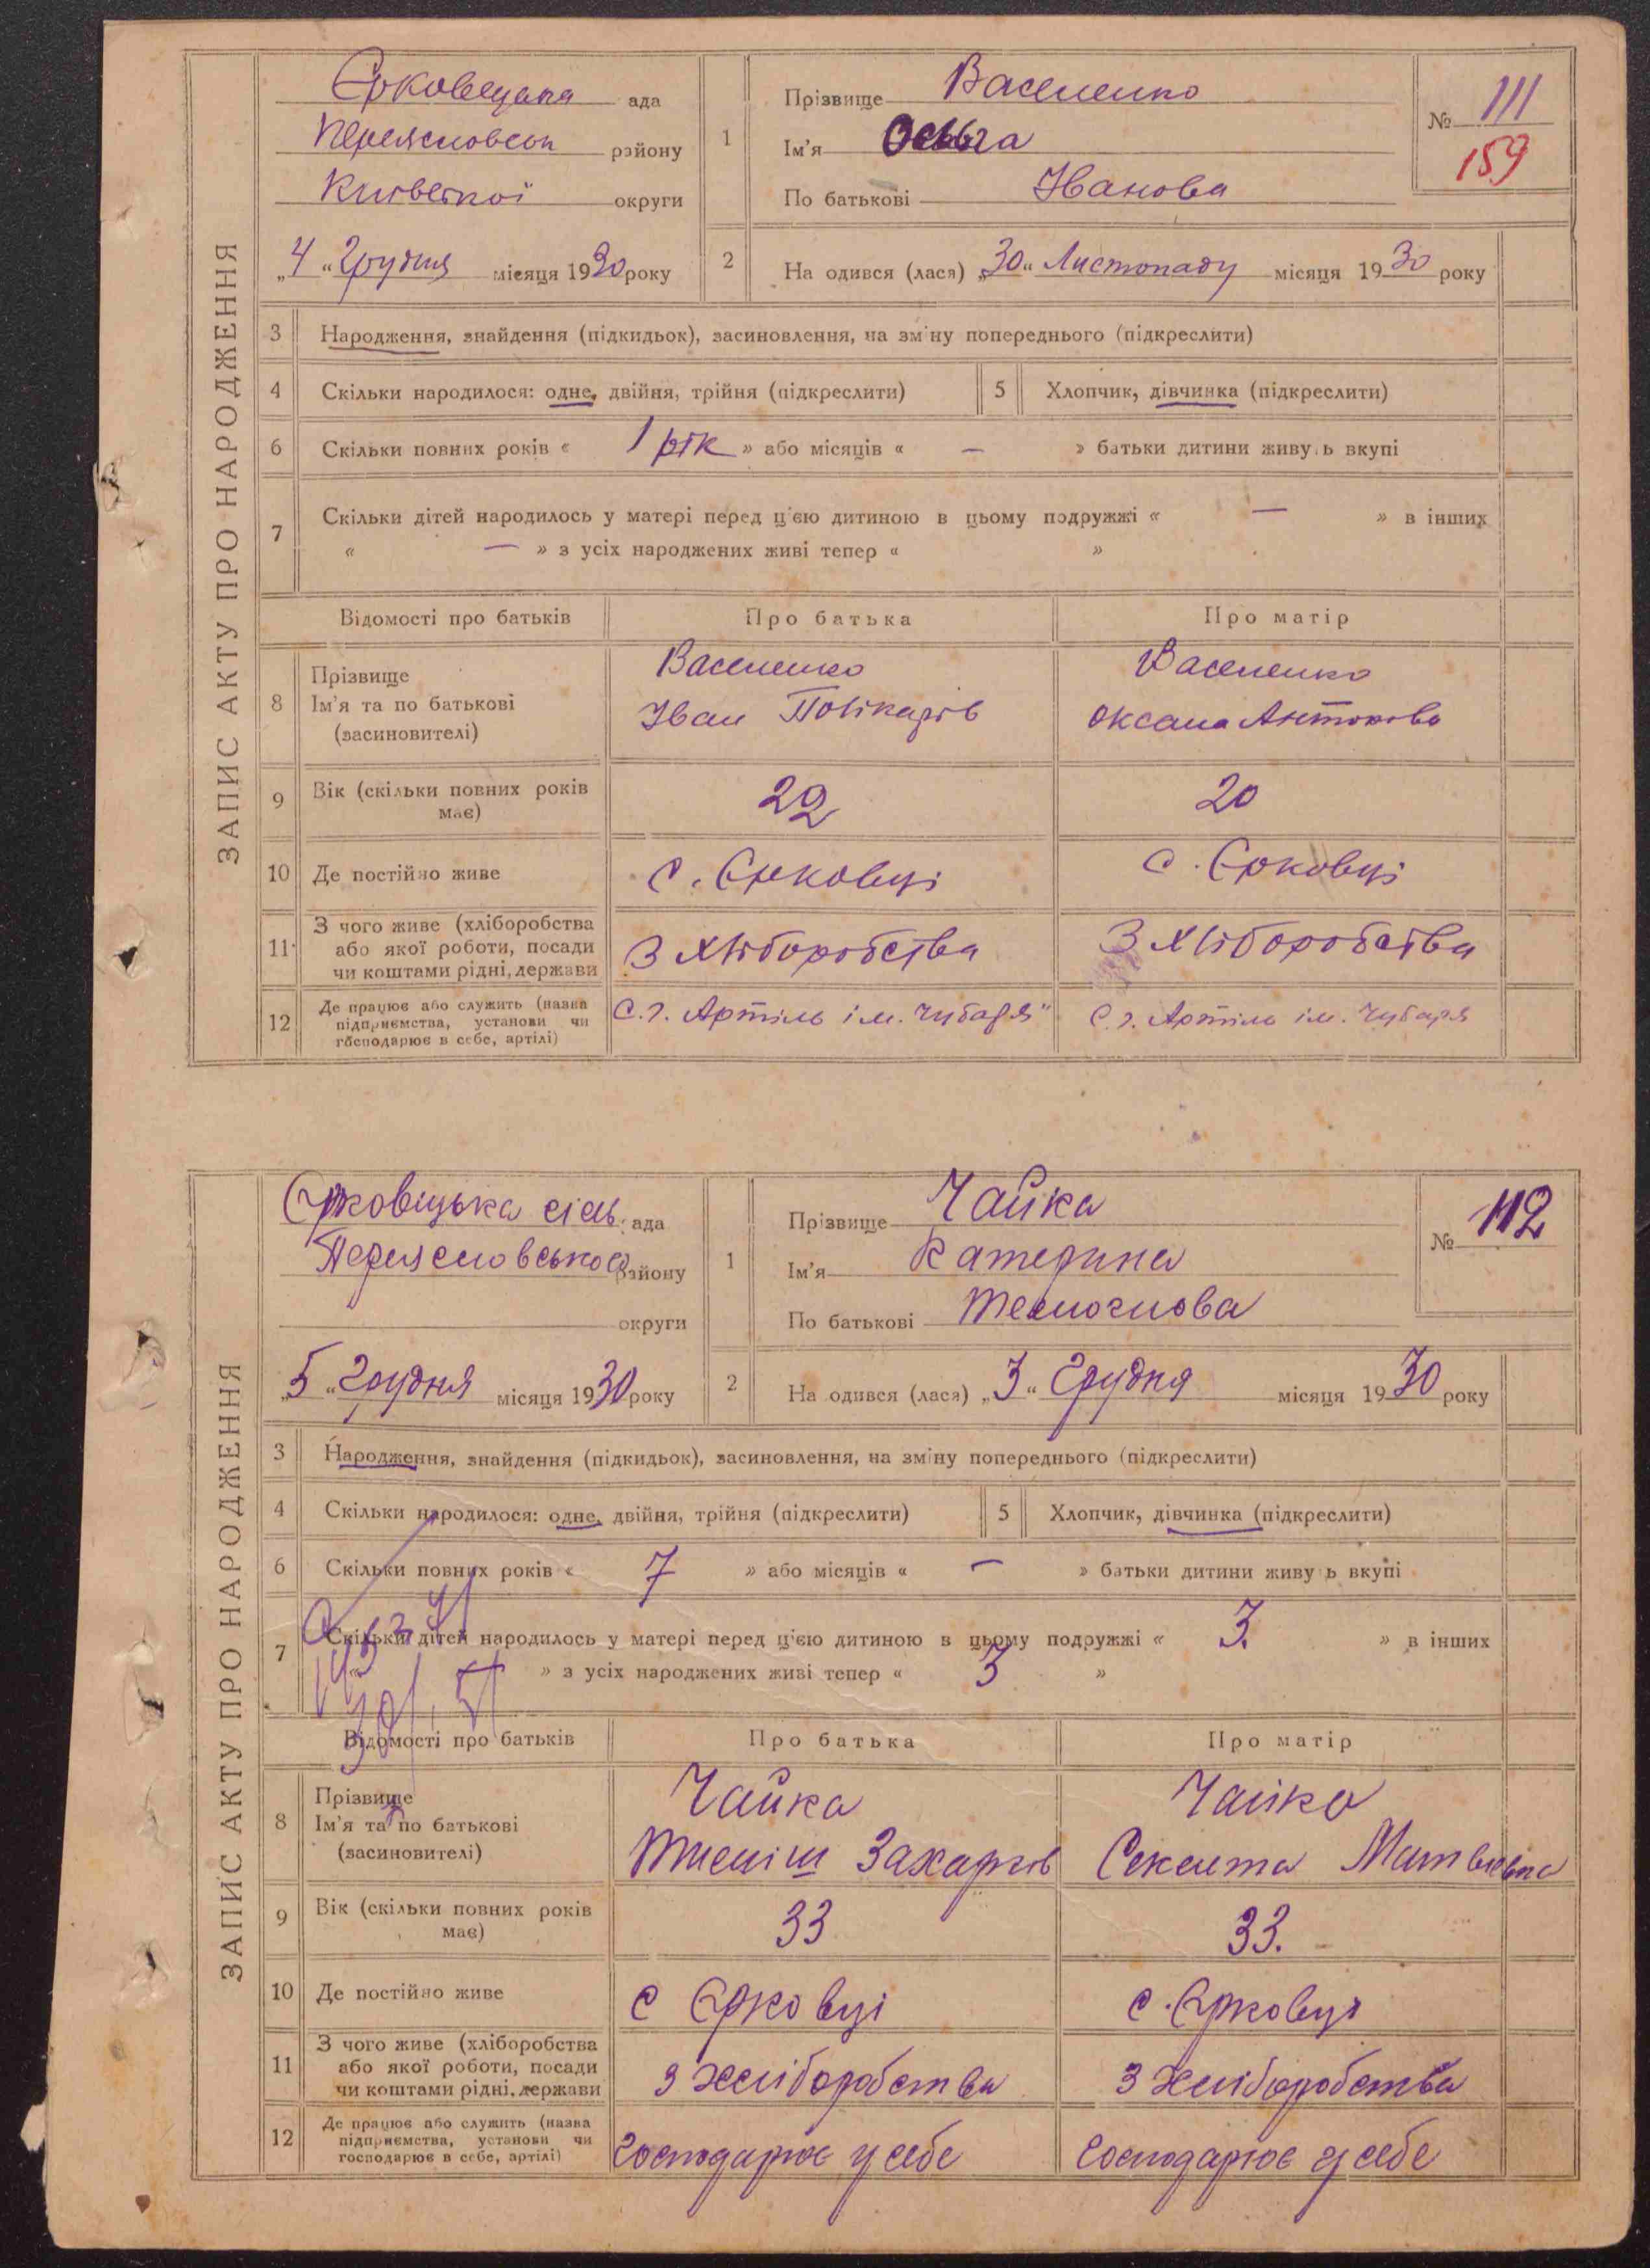 ЗАПИС АКТУ ПРО НАРОДЖЕННЯ
Єрковецька ада
Переясловськ району
Київської округи
„4“ Грудня місяця 1930 року
1 Прізвище Василенко
Ім'я Ольга
По батькові Іванова
№ 111
159
2 На одився (лася) „30“ Листопаду місяця 1930 року
3 Народження, знайдення (підкидьок), засиновлення, на зміну попереднього (підкреслити)
4 Скільки народилося: одне, двійня, трійня (підкреслити) 5 Хлопчик, дівчинка (підкреслити)
6 Скільки повних років « 1 рік » або місяців « — » батьки дитини живу ь вкупі
7 Скільки дітей народилось у матері перед ц'єю дитиною в цьому подружжі « — » в інших
« — » з усіх народжених живі тепер « »
Відомості про батьків Про батька Про матір
8 Прізвище Ім'я та по батькові (засиновителі)
Василенко Василенко
Іван Полікарпів Оксана Антонова
9 Вік (скільки повних років має) 22 20
10 Де постійно живе с. Єрковці с. Єрковці
11 З чого живе (хліборобства або якої роботи, посади чи коштами рідні, держави З хліборобства З хліборобства
12 Де працює або служить (назва підприємства, установи чи господарює в себе, артілі) С.г. Артіль ім. Чубаря" С.г. Артіль ім. Чубаря
ЗАПИС АКТУ ПРО НАРОДЖЕННЯ
Єрковецька сіль. ада
Переясловського району
округи
„5“ Грудня місяця 1930 року
1 Прізвище Чайка
Ім'я Катерина
По батькові
№ 112
2 На одився (лася) „3“ Грудня місяця 1930 року
3 Народження, знайдення (підкидьок), засиновлення, на зміну попереднього (підкреслити)
4 Скільки народилося: одне, двійня, трійня (підкреслити) 5 Хлопчик, дівчинка (підкреслити)
6 Скільки повних років « 7 » або місяців « — » батьки дитини живу ь вкупі
7 Скільки дітей народилось у матері перед ц'єю дитиною в цьому подружжі « 3. » в інших
» з усіх народжених живі тепер « 3 »
Відомості про батьків Про батька Про матір
8 Прізвище Ім'я та по батькові (засиновителі)
Чайка Чайка
Захарів
9 Вік (скільки повних років має) 33 33.
10 Де постійно живе с Єрковці с. Єрковці
11 З чого живе (хліборобства або якої роботи, посади чи коштами рідні, держави З хліборобства З хліборобства
12 Де працює або служить (назва підприємства, установи чи господарює в себе, артілі) Господарює у себе Господарює у себе